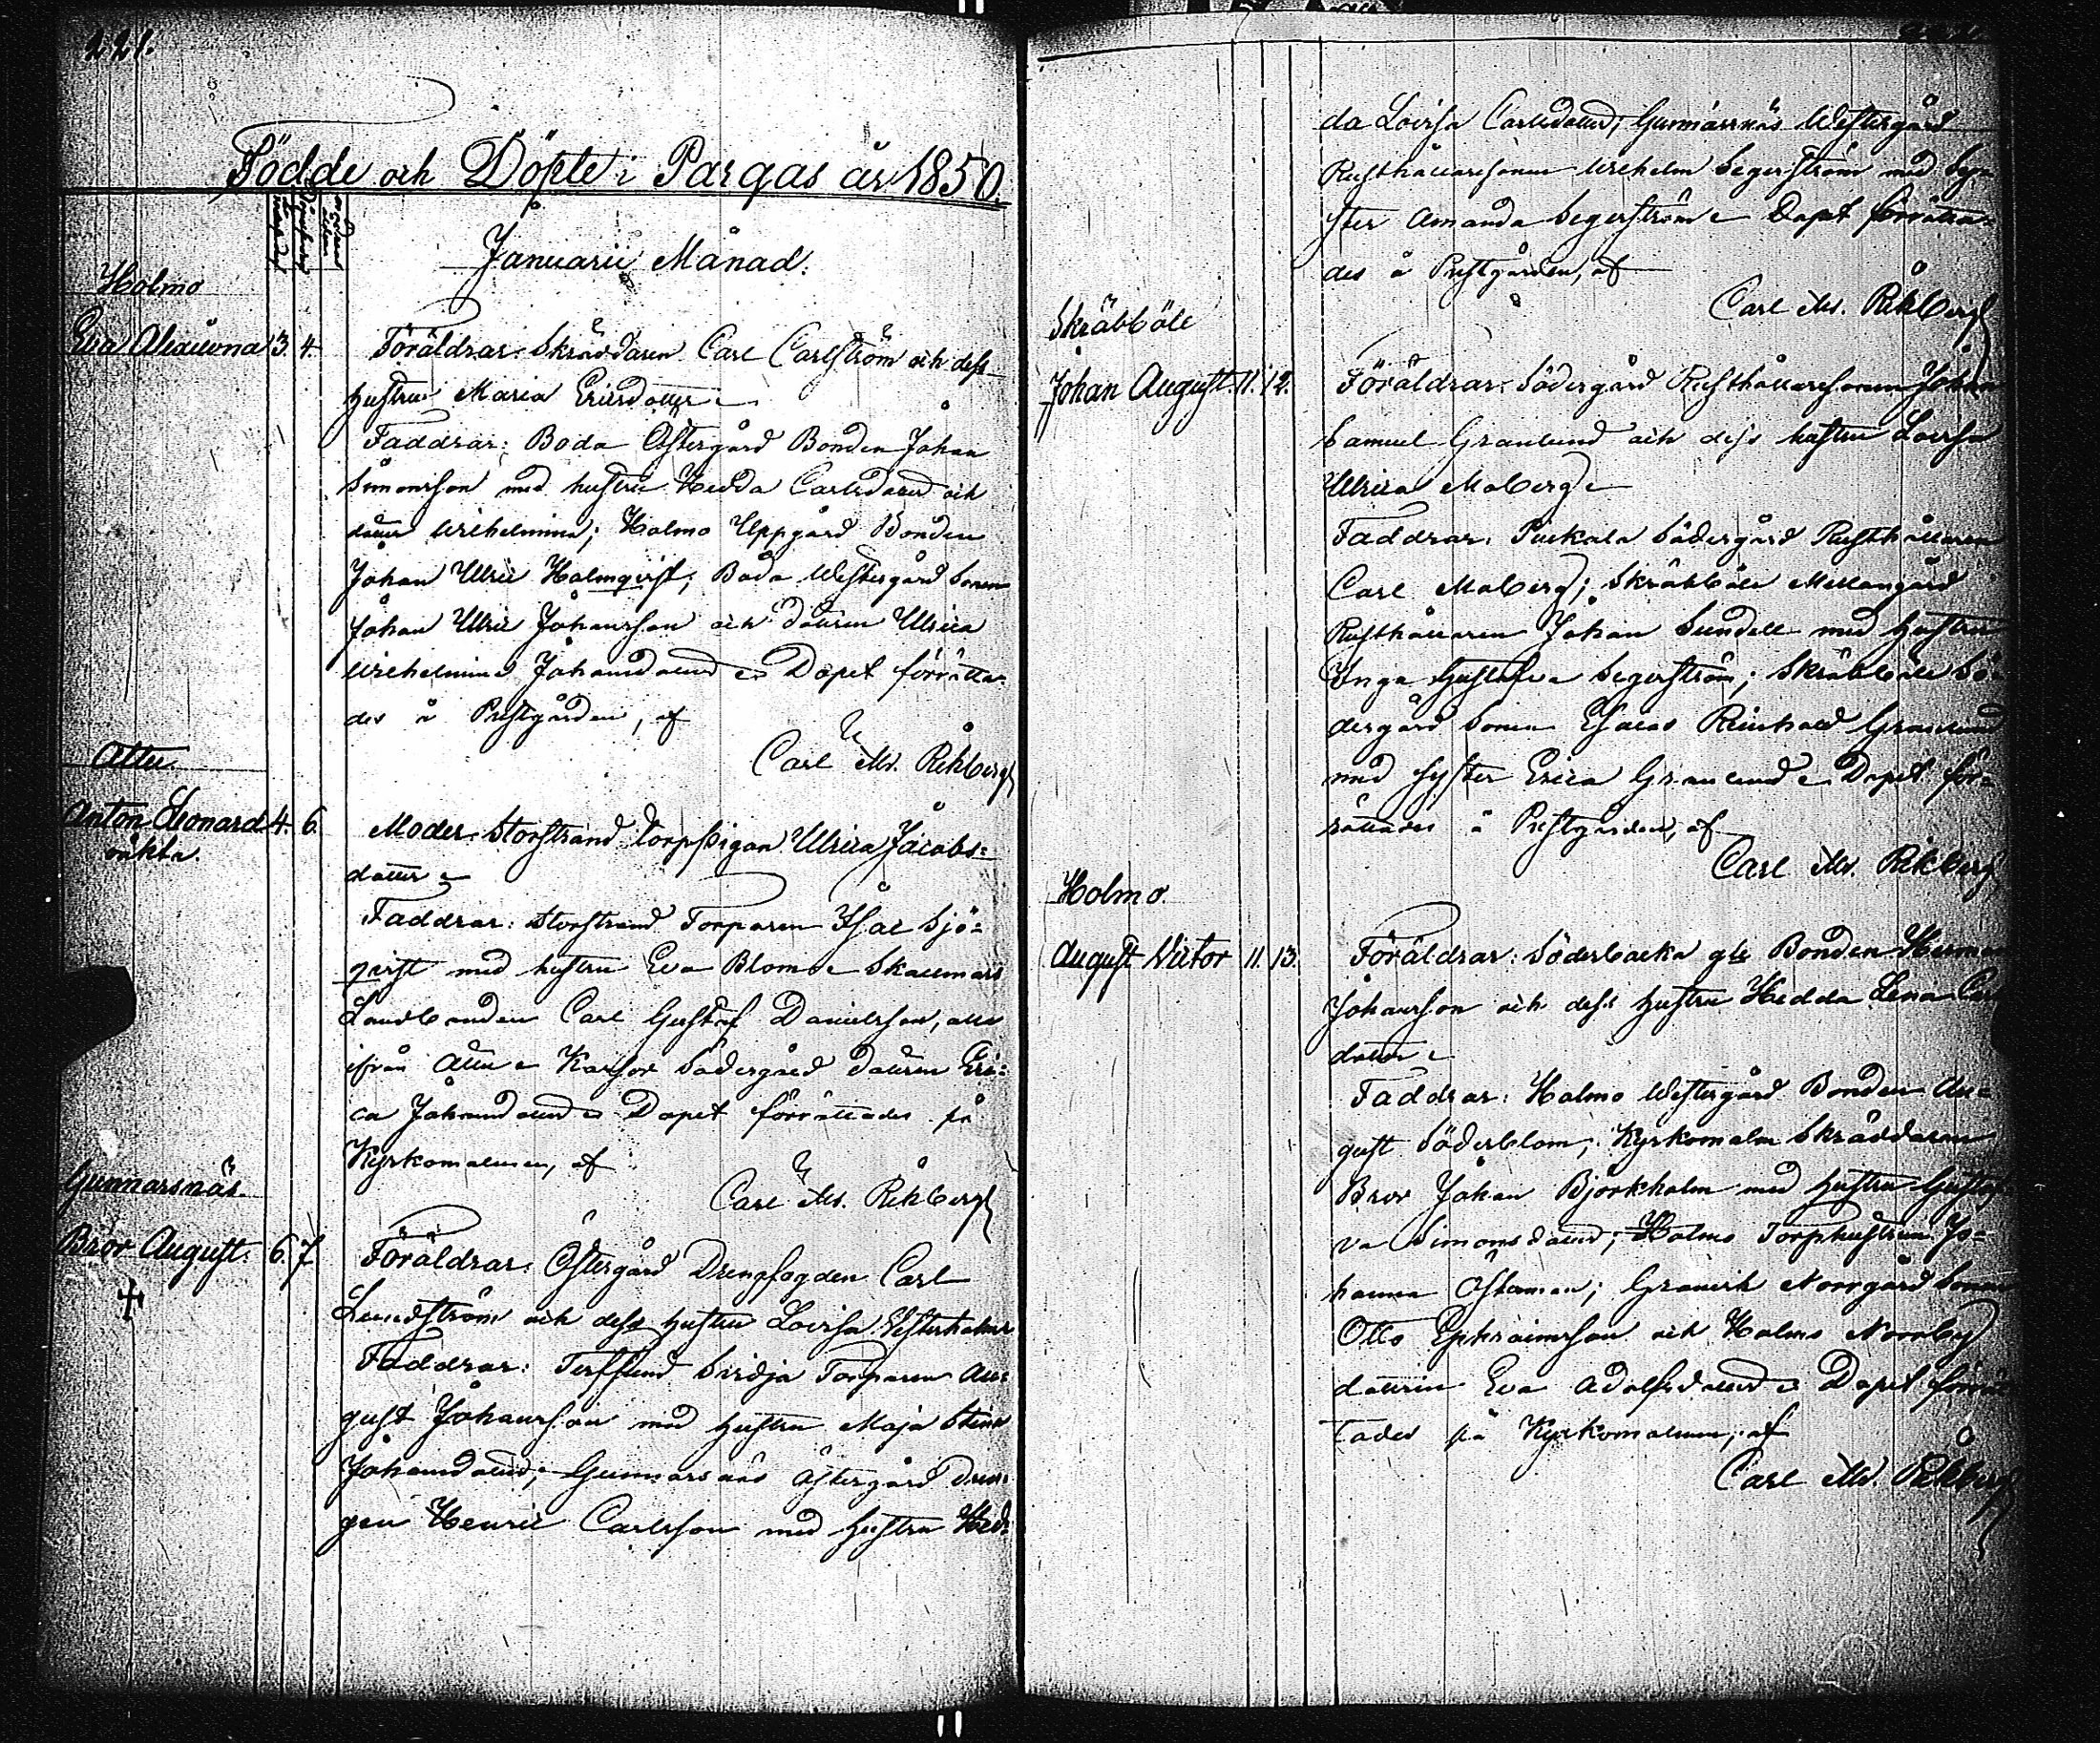 221.
Födde och Döpte i Pargas år 1850.
Januarii Månad.
Holmo
Eva Alexiewna 3. 4.
Föräldrar: Skräddaren Carl Carlström och dess
hustru Maria Ericsdotter
Faddrar: Boda Östergård Bonden Johan
Simonsson med hustru Hedda Carlsdotter och
dotter Wilhelmina; Holmo Uppgård Bonden
Johan Ulric Holmqvist; Boda Westergård Sonen
Johan Ulric Johansson och dottren Ulrica
Wilhelmina Johansdotter Dopet förrätta-
des å Prestgården, af
Carl M. Rikberg
Attu
Anton Leonard 4. 6.
oäkta.
Moder: Storstrand torpspigan Ulrica Jacobs=
dotter
Faddrar: Storstrand Torparen Isac Sjö=
qvist med hustru Eva Blom Skallmars
Landbonden Carl Gustaf Danielsson, alla
ifrån Attu Korsor Södergård dottren Eri=
ca Johansdotter Dopet förrättades på
Kyrkomalmen, af
Carl M. Rikberg
Gunnarsnäs.
Bror August. 6. 7.
Föräldrar: Östergård Drengfogden Carl
Lundström och dess hustru Lovisa Westerholm
Faddrar: Terfsund Torparen Au=
gust Johansson med hustru Maja Stina
Johansdotter; Gunnarsnäs Östergård Dren=
gen Henric Carlsson med hustru Hed=
da Lovisa Carlsdotter; Gunnarsnäs Westergård
Rusthållaresonen Wilhelm Segerström med Sy=
ster Amanda Segerström Dopet förrätta=
des å Prestgården, af
Carl M. Rikberg
Skräbböle
Johan August. 11. 12.
Föräldrar: Södergård Rusthållaresonen Johan
Samuel Granlund och dess hustru Lovisa
Ulrica Moberg
Faddrar: Piukala Södergård Rusthållaren
Carl Moberg; Skräbböle Mellangård
Rusthållaren Johan Sundell med hustru
Inga Gustafva Segerström; Skräbböle Sö=
dergård Sonen Esaias Reinhold Granlund
med syster Erica Granlund Dopet för=
rättades å Prestgården, af
Carl M. Rikberg
Holmo.
August Victor 11. 13.
Föräldrar: Söderbacka Bonden Herman
Johansson och dess hustru Hedda Lena Carls
dotter
Faddrar: Holmo Westergård Bonden Au=
gust Söderblom; Kyrkomalm Skräddaren
Bror Johan Björkholm med hustru Gustaf
va Simonsdotter; Holmo Torphustrun Jo=
hanna Österman; Granvik Norrgård Sonen
Otto Ephraimsson och Holmo Norrby
dottren Eva Adolfsdotter Dopet förrät
tades på Kyrkomalmen, af
Carl M. Rikberg